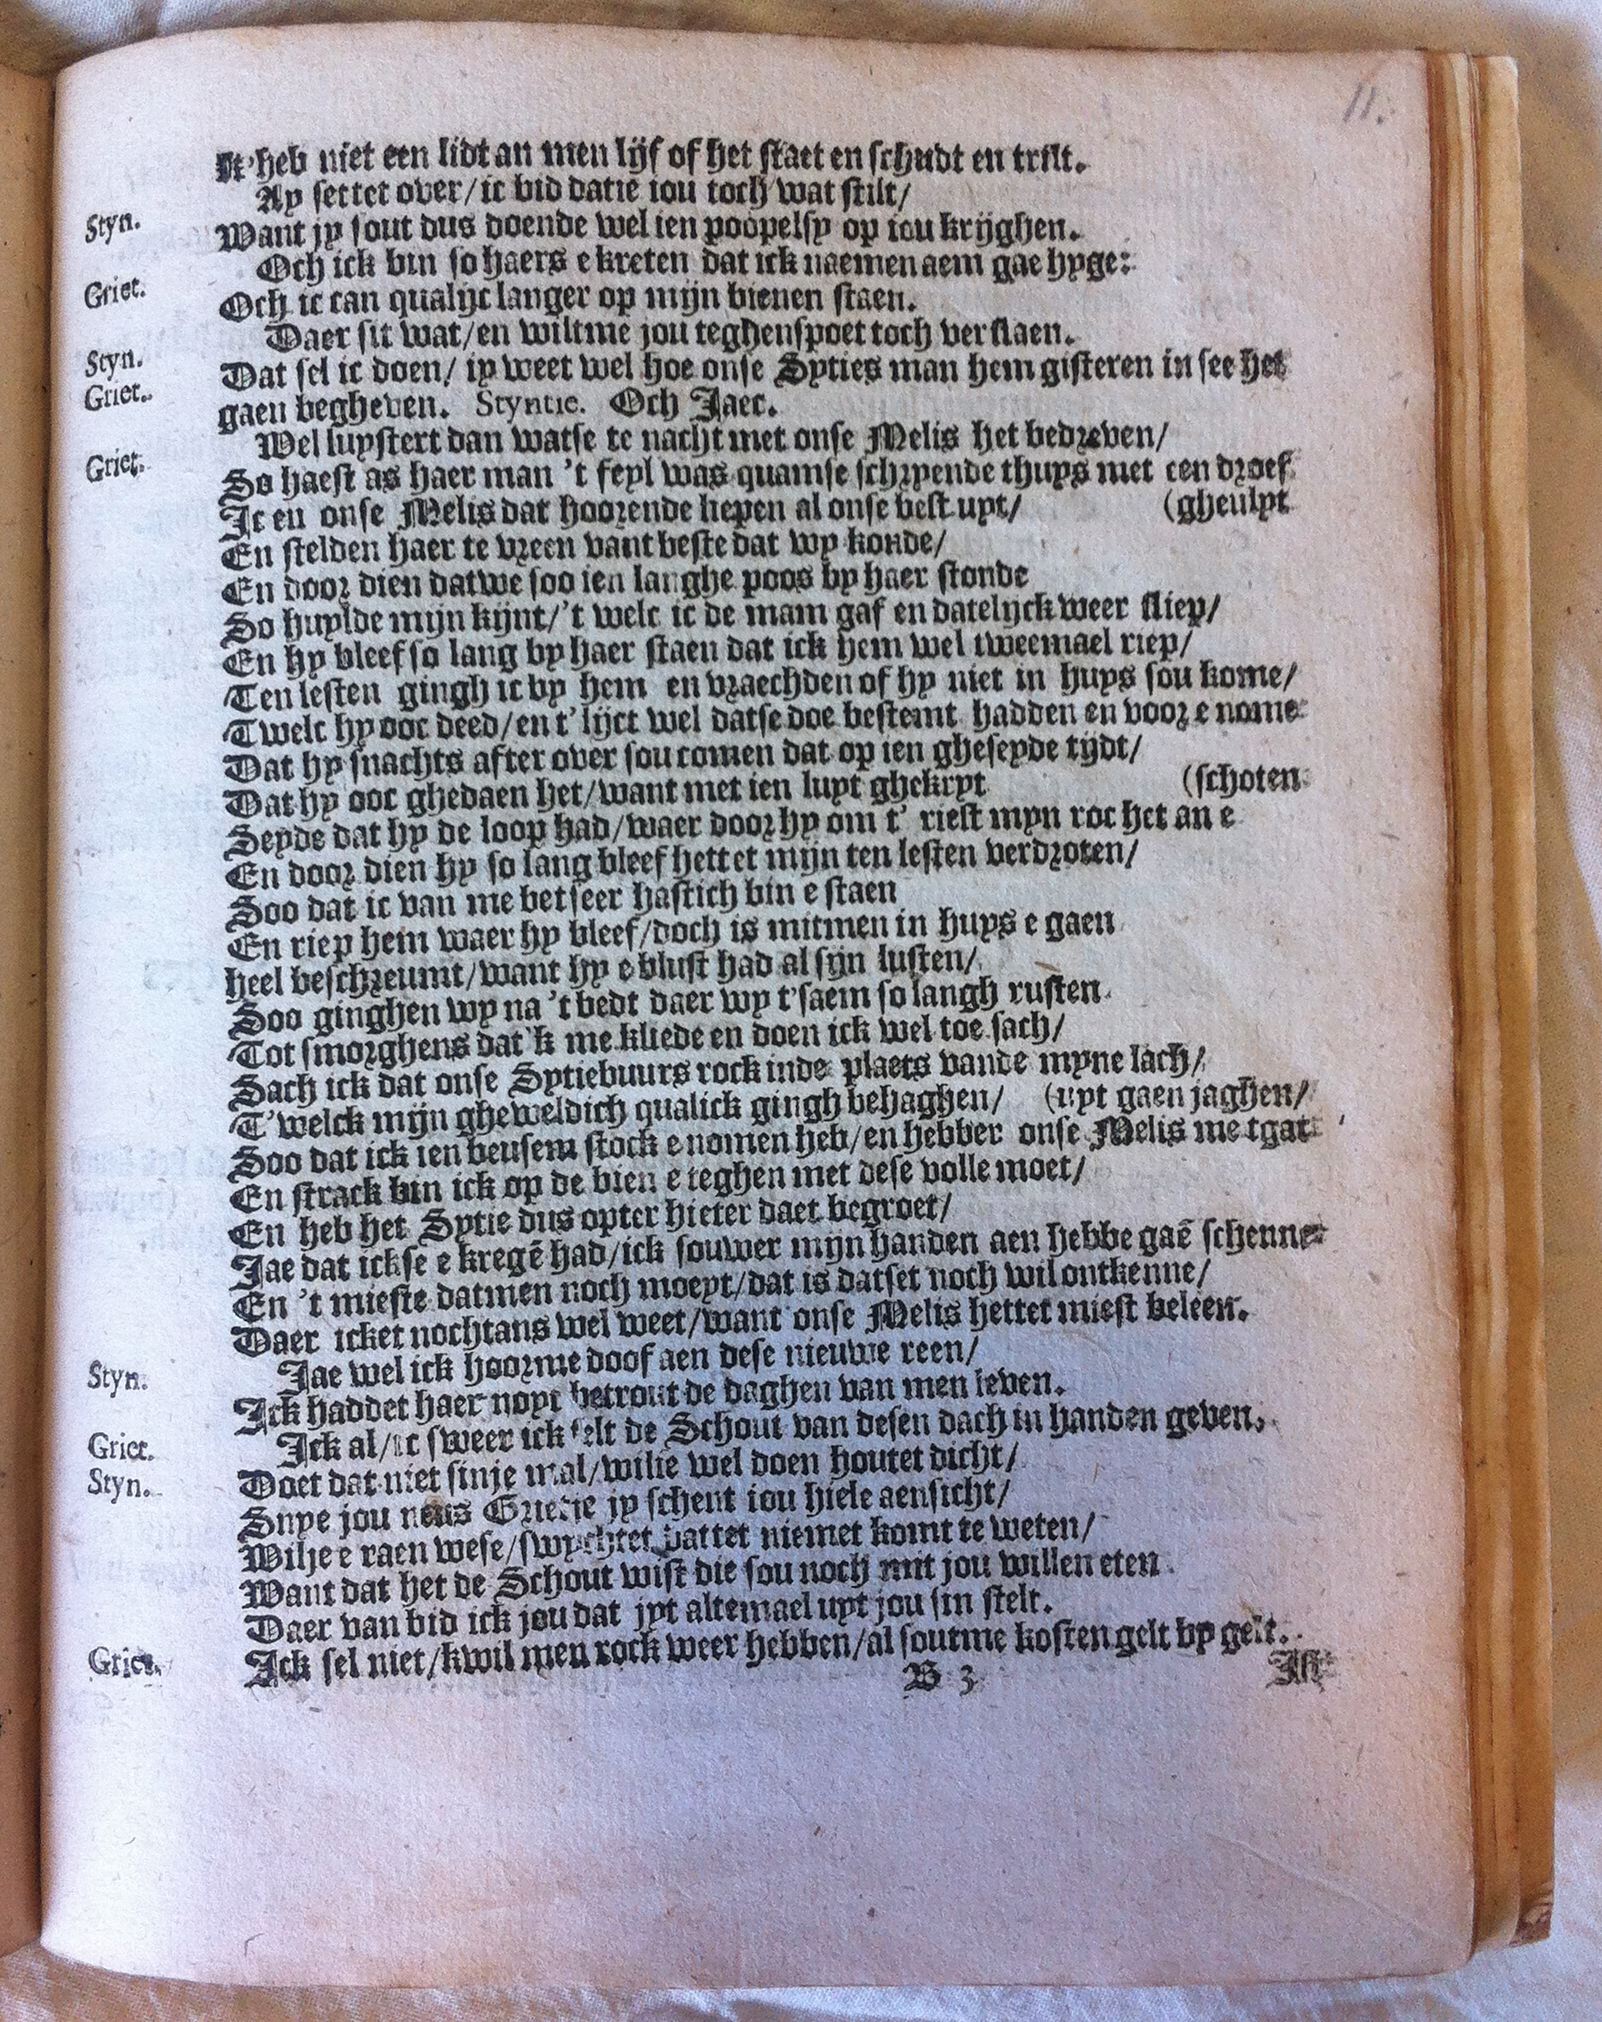 11.
Ik'heb niet een lidt an men lijf of het staet en schudt en trilt.
Styn. Ay settet over/ ic bid datie iou toch wat stilt/
Want jy sout dus doende wel ien poopelsy op iou krijghen.
Griet. Och ick bin so haers e kreten dat ick naemen aem gae hyge:
Och ic can qualijc langer op mijn bienen staen.
Styn. Daer sit wat/en wiltme jou teghenspoet toch verslaen.
Griet. Dat sel ic doen/ iy weet wel hoe onse Syties man hem gisteren in see het
gaen begheven. Styntie. Och Jaec.
Griet. Wel luystert dan watse te nacht met onse Melis het bedreven/
So haest as haer man 't seyl was quamse schrypende thuys met een droef
Ic en onse Melis dat hoorende liepen al onse best uyt/ (gheulpt
En stelden haer te vreen vant beste dat wy konde/
En door dien datwe soo ien langhe poos by haer stonde
So huylde mijn kijnt/'t welc ic de mam gaf en datelijck weer sliep/
En hy bleef so lang by haer staen dat ick hem wel tweemael riep/
Ten lesten gingh ic by hem en vraechden of hy niet in huys sou kome/
Twelc hy ooc deed/en t'lijct wel datse doe bestemt hadden en voor e nome
Dat hy snachts after over sou comen dat op ien gheseyde tijdt/
Dat hy ooc ghedaen het/want met ien luyt ghekryt (schoten
Seyde dat hy de loop had/waer door hy om t' riest myn roc het an e
En door dien hy so lang bleef hettet mijn ten lesten verdroten/
Soo dat ic van me bet seer hastich bin e staen
En riep hem waer hy bleef/doch is mitmen in huys e gaen
heel beschreumt/want hy e blust had al sijn lusten/
Soo ginghen wy na 't bedt daer wy t'saem so langh rusten
Tot smorghens dat'k me kliede en doen ick wel toe sach/
Sach ick dat onse Sytiebuurs rock inde plaets vande myne lach/
T'welck mijn gheweldich qualick gingh behaghen/ (uyt gaen jaghen/
Soo dat ick ien beusem stock e nomen heb/en hebber onse Melis me tgat
En strack bin ick op de bien e teghen met dese volle moet/
En heb het Sytie dus opter hieter daet begroet/
Jae dat ickse e kregē had/ick souwer mijn handen aen hebbe gaē schenne
En 't mieste datmen noch moeyt/dat is datset noch wil ontkenne/
Daer icket nochtans wel weet/want onse Melis hettet miest beleen.
Styn. Jae wel ick hoorme doof aen dese nieuwe reen/
Ick haddet haer noyt betrout de daghen van men leven.
Griet. Ick al/ic sweer ick selt de Schout van desen dach in handen geven.
Styn. Doet dat niet sinje mal/wilie wel doen houtet dicht/
Snye jou neus Grietje jy schent iou hiele aensicht/
Wilje e raen wese/swychtet dattet niemet komt te weten/
Want dat het de Schout wist die sou noch mit jou willen eten
Daer van bid ick jou dat jyt altemael uyt jou sin stelt.
Griet. Ick sel niet/kwil men rock weer hebben/al soutme kosten gelt by gelt.
B 3 Ik